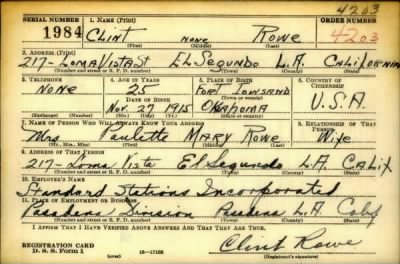 4203
SERIAL NUMBER 1. NAME (Print) ORDER NUMBER
1984 Clint none Rowe 4203
(First) (Middle) (Last)
2. ADDRESS (Print)
217-Loma Vista St El Segundo L.A. California
(Number and street or R. F. D. number) (Town) (County) (State)
3. TELEPHONE 4. AGE IN YEARS 5. PLACE OF BIRTH 6. COUNTRY OF CITIZENSHIP
None 25 Fort Towsand
DATE OF BIRTH (Town or county) U.S.A.
Nov. 27 1915 Oklahoma
(Exchange) (Number) (Mo.) (Day) (Yr.) (State or country)
7. NAME OF PERSON WHO WILL ALWAYS KNOW YOUR ADDRESS 8. RELATIONSHIP OF THAT PERSON
Mrs Paulette Mary Rowe Wife
(Mr., Mrs., Miss) (First) (Middle) (Last)
9. ADDRESS OF THAT PERSON
217-Loma Vista El Segundo L.A. Calif
(Number and street or R. F. D. number) (Town) (County) (State)
10. EMPLOYER'S NAME
Standard Stations Incorporated
11. PLACE OF EMPLOYMENT OR BUSINESS
Pasadena Division L.A. Calif
(Number and street or R. F. D. number) (Town) (County) (State)
I AFFIRM THAT I HAVE VERIFIED ABOVE ANSWERS AND THAT THEY ARE TRUE.
REGISTRATION CARD
D. S. S. Form 1 16-17105 Clint Rowe
(Registrant's signature)